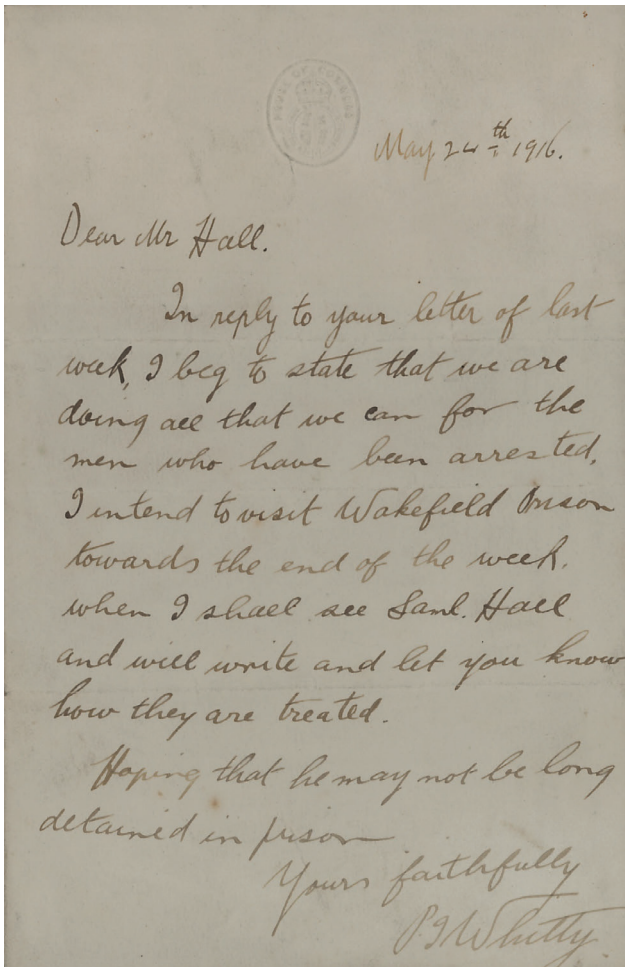 HOUSE OF COMMONS
May. 24th 1916.
Dear Mr Hall.
In reply to your letter of last
week, I beg to state that we are
doing all that we can for the
men who have been arrested.
I intend to visit Wakefield Prison
towards the end of the week.
when I shall see Saml. Hall
and will write and let you know
how they are treated.
Hoping that he may not be long
detained in prison
Yours faithfully
P J Whitty.